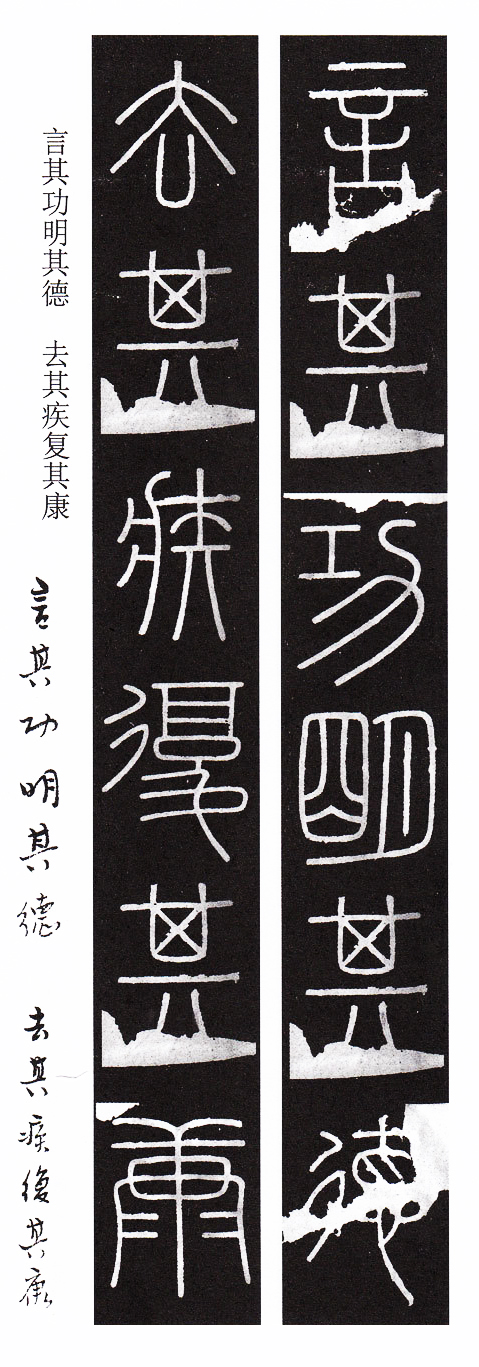 言其功明其德
去其疾復其康
言其功明其德　去其疾复其康
言其功明其德　去其疾復其康